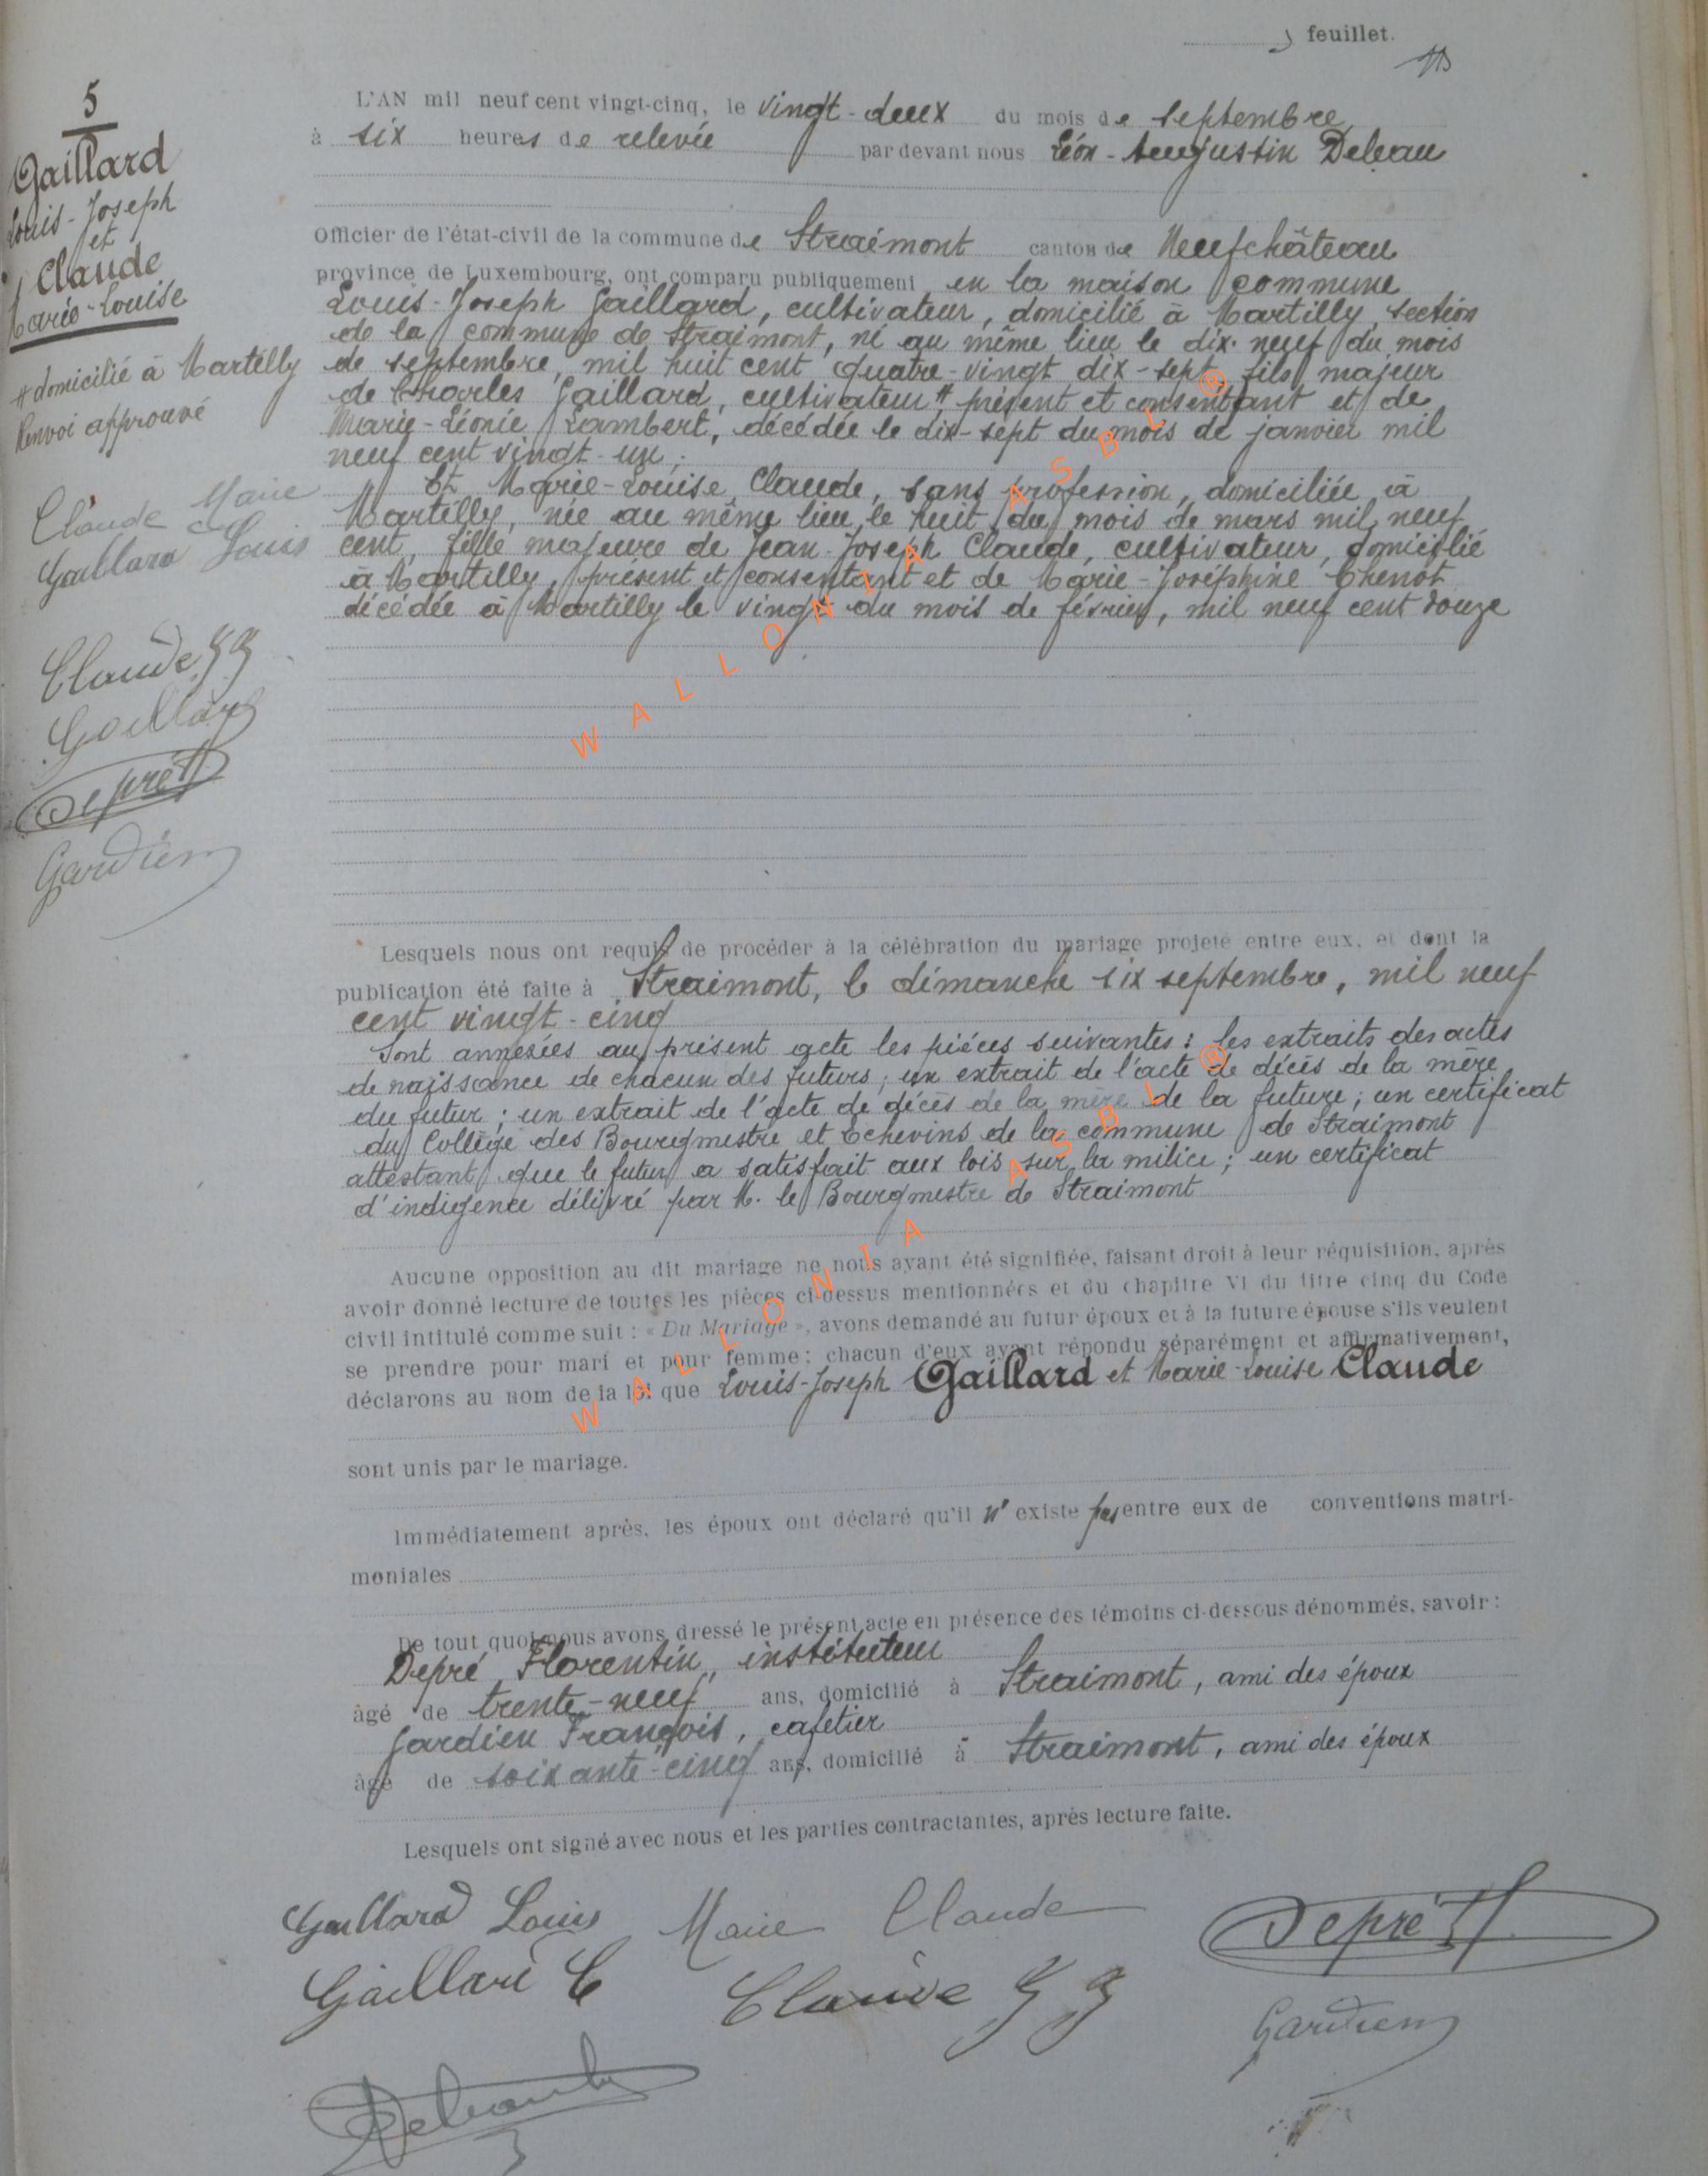 feuillet.
5
Gaillard
Louis-Joseph
et
Claude
Marie-Louise
# domicilié à Martilly
Renvoi approuvé
Claude Marie
Gaillard Louis
Claude J J
Gaillard
Depré
Gardien
L'AN mil neuf cent vingt-cinq, le vingt-deux du mois de septembre
à six heures de relevée par devant nous Léon-Augustin Deleau
Officier de l'état-civil de la commune de Straimont canton de Neufchâteau
province de Luxembourg, ont comparu publiquement en la maison commune
Louis-Joseph Gaillard, cultivateur, domicilié à Martilly, section
de la commune de Straimont, né au même lieu le dix-neuf du mois
de septembre, mil huit cent quatre-vingt dix-sept, fils majeur
de Charles Gaillard, cultivateur # présent et consentant et de
Marie-Léonie Lambert, décédée le dix-sept du mois de janvier mil
neuf cent vingt-un;
Et Marie-Louise Claude, sans profession, domiciliée à
Martilly, née au même lieu le huit du mois de mars mil neuf
cent, fille majeure de Jean-Joseph Claude, cultivateur, domicilié
à Martilly, présent et consentant et de Marie-Joséphine Chenot
décédée à Martilly le vingt du mois de février, mil neuf cent douze
WALLONIA ASBL ®
Lesquels nous ont requis de procéder à la célébration du mariage projeté entre eux, et dont la
publication été faite à Straimont, le dimanche six septembre, mil neuf
cent vingt-cinq
Sont annexées au présent acte les pièces suivantes: les extraits des actes
de naissance de chacun des futurs; un extrait de l'acte de décès de la mère
du futur; un extrait de l'acte de décès de la mère de la future; un certificat
du Collège des Bourgmestre et Echevins de la commune de Straimont
attestant que le futur a satisfait aux lois sur la milice; un certificat
d'indigence délivré par M. le Bourgmestre de Straimont
WALLONIA ASBL ®
Aucune opposition au dit mariage ne nous ayant été signifiée, faisant droit à leur réquisition, après
avoir donné lecture de toutes les pièces ci-dessus mentionnées et du chapitre VI du titre cinq du Code
civil intitulé comme suit : « Du Mariage », avons demandé au futur époux et à la future épouse s'ils veulent
se prendre pour mari et pour femme; chacun d'eux ayant répondu séparément et affirmativement,
déclarons au nom de la loi que Louis-Joseph Gaillard et Marie-Louise Claude
sont unis par le mariage.
Immédiatement après, les époux ont déclaré qu'il n'existe pas entre eux de conventions matri-
moniales
De tout quoi nous avons dressé le présent acte en présence des témoins ci-dessous dénommés, savoir :
Depré Florentin, instituteur
âgé de trente-neuf ans, domicilié à Straimont, ami des époux
Gardien François, cafetier
âgé de soixante-cinq ans, domicilié à Straimont, ami des époux
Lesquels ont signé avec nous et les parties contractantes, après lecture faite.
Gaillard Louis Marie Claude Depré
Gaillard C Claude J J Gardien